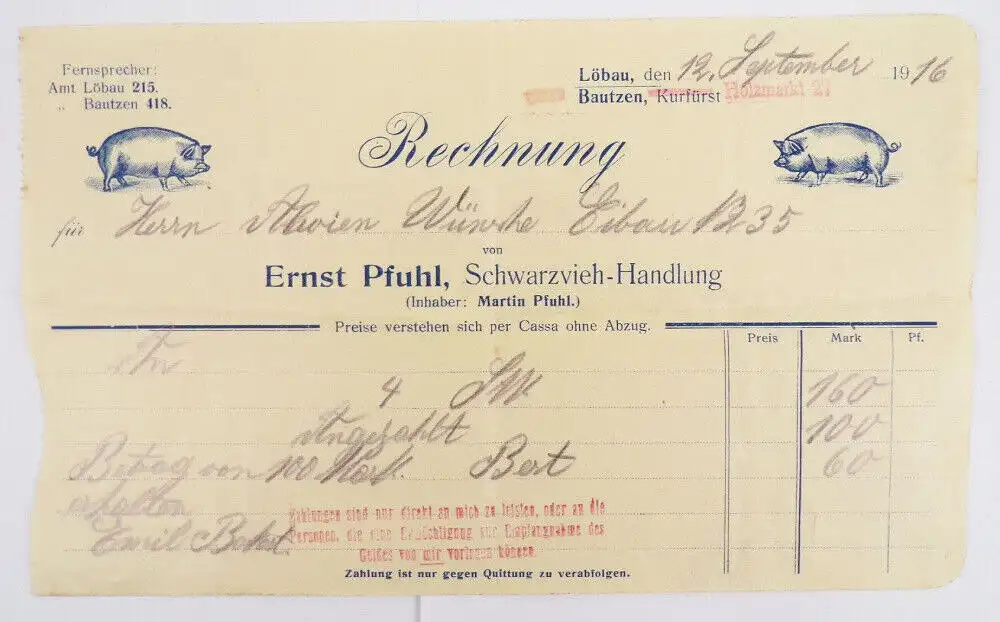 Fernsprecher:
Amt Löbau 215.
„ Bautzen 418.
Löbau, den 12. September 1916
Bautzen, Kurfürst Holzmarkt 21
Rechnung
für Herrn Wünsche Eibau 1235
von
Ernst Pfuhl, Schwarzvieh-Handlung
(Inhaber: Martin Pfuhl.)
Preise verstehen sich per Cassa ohne Abzug.
Preis Mark Pf.
An
4 160
Angezahlt 100
Betrag von 100 Mark Rest 60
erhalten
Emil
Zahlungen sind nur direkt an mich zu leisten, oder an die
Personen, die eine Ermächtigung zur Empfangnahme des
Geldes von mir vorlegen können.
Zahlung ist nur gegen Quittung zu verabfolgen.